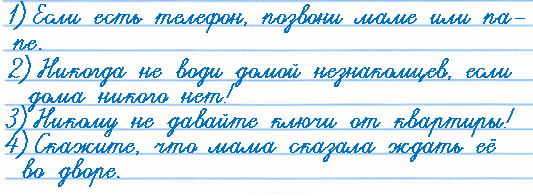 1) Если есть телефон, позвони маме или па-
пе.
2) Никогда не води домой незнакомцев, если
дома никого нет!
3) Никому не давайте ключи от квартиры!
4) Скажите, что мама сказала ждать её
во дворе.